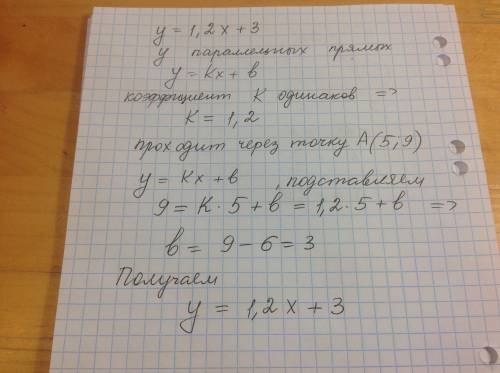 y = 1,2x + 3
у параллельных прямых
y = Kx + b
коэффициент K одинаков =>
K = 1,2
проходит через точку A(5;9)
y = Kx + b , подставляем
9 = K · 5 + b = 1,2 · 5 + b =>
b = 9 - 6 = 3
Получаем
y = 1,2x + 3